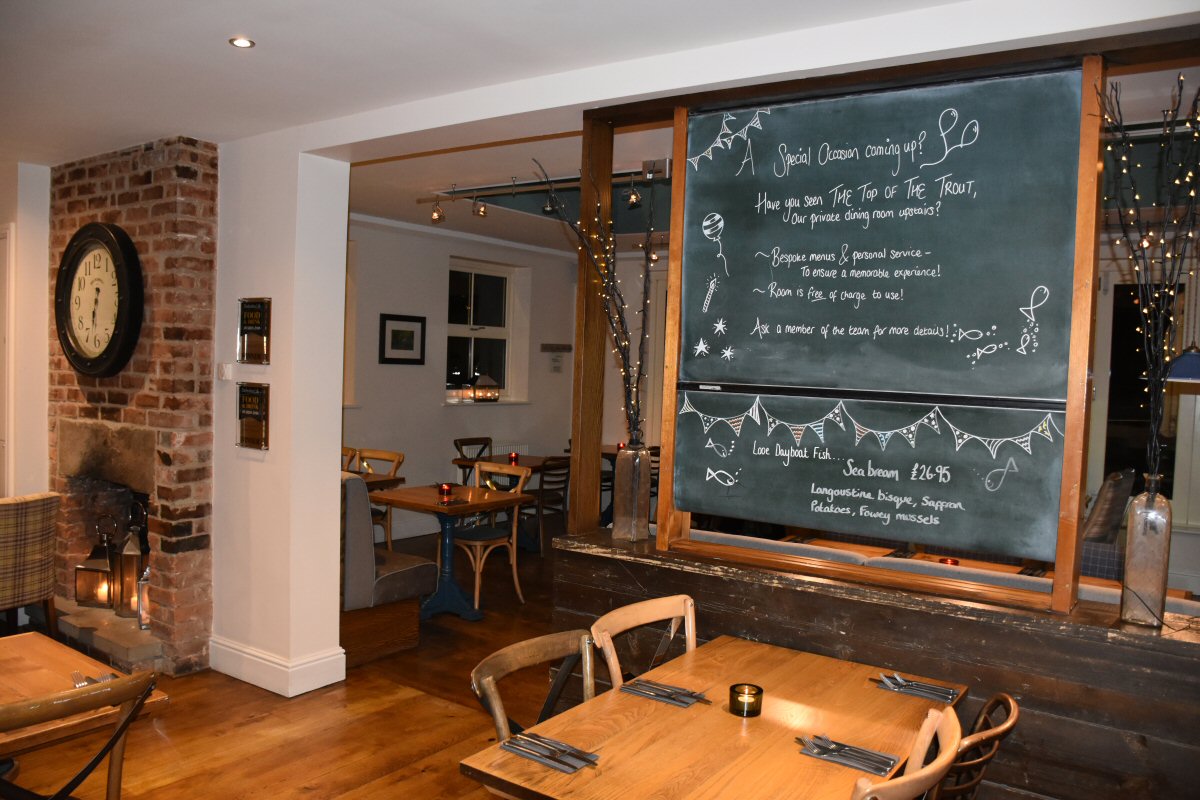 A Special Occasion coming up?
Have you seen THE TOP OF THE TROUT,
Our private dining room upstairs?
~ Bespoke menus & personal service -
To ensure a memorable experience!
~ Room is free of charge to use!
Ask a member of the team for more details!
Looe Dayboat Fish...
Sea bream £26.95
Langoustine bisque, Saffron
Potatoes, Fowey mussels
FOOD
& DRINK
FOOD
& DRINK
12
1
2
3
4
5
6
7
8
9
10
11